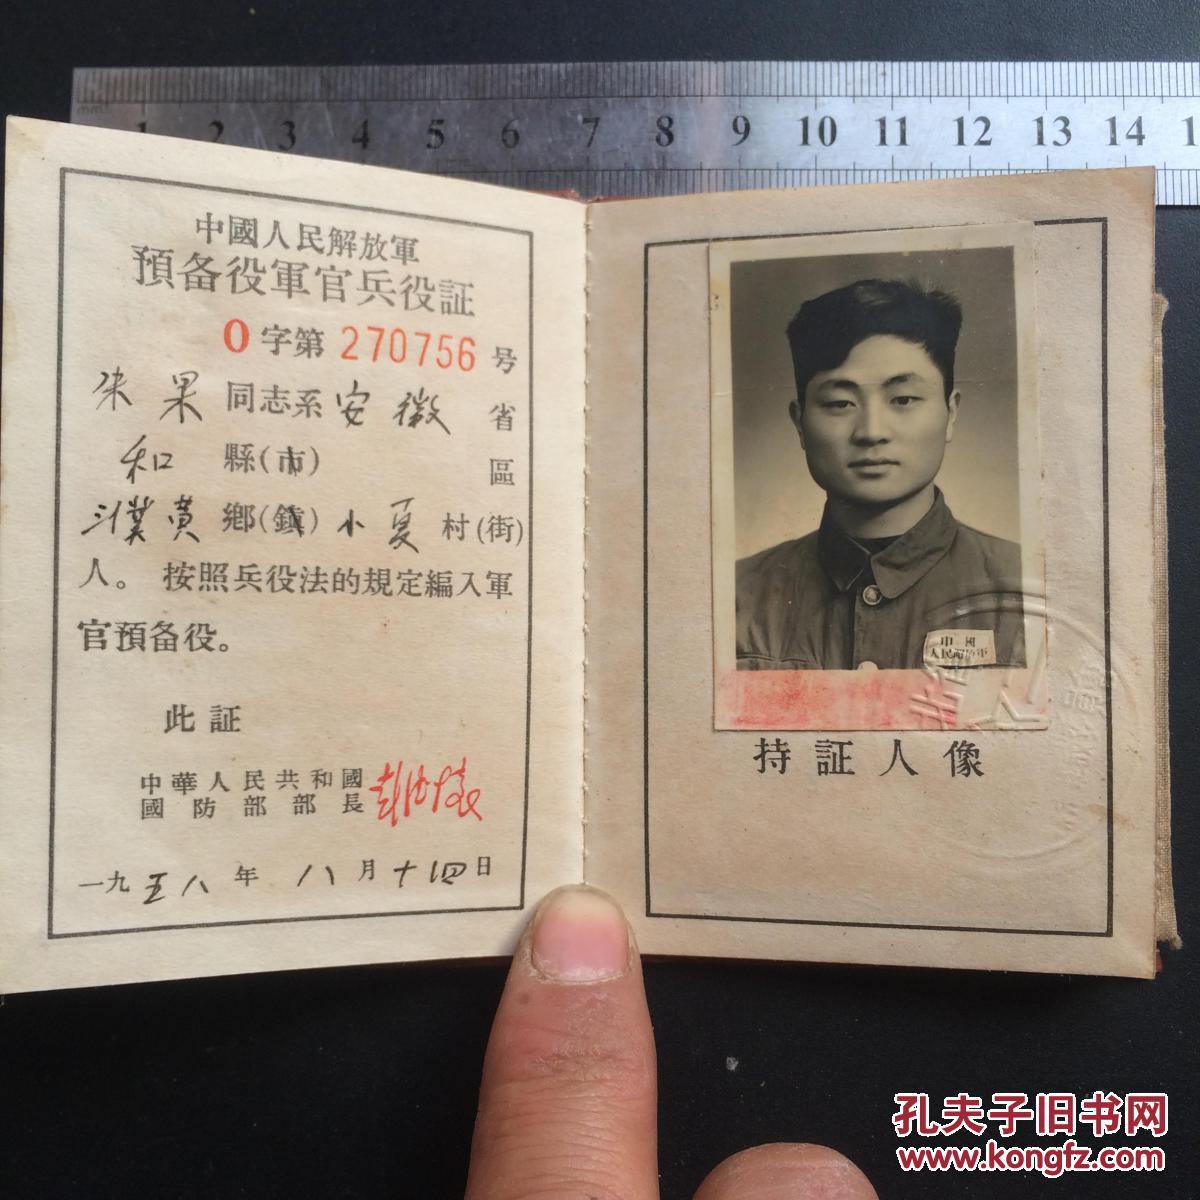 mm 1 2 3 4 5 6 7 8 9 10 11 12 13 14 1
中國人民解放軍
預备役軍官兵役証
0 字第 270756 号
朱果 同志系 安徽 省
和 縣(市) 區
濮黄 鄉(鎮) 小夏 村(街)
人。按照兵役法的規定編入軍
官預备役。
此証
中華人民共和國
國防部部長 彭德懷
一九五八年八月十四日
中國
人民解放軍
持証人像
孔夫子旧书网
www.kongfz.com